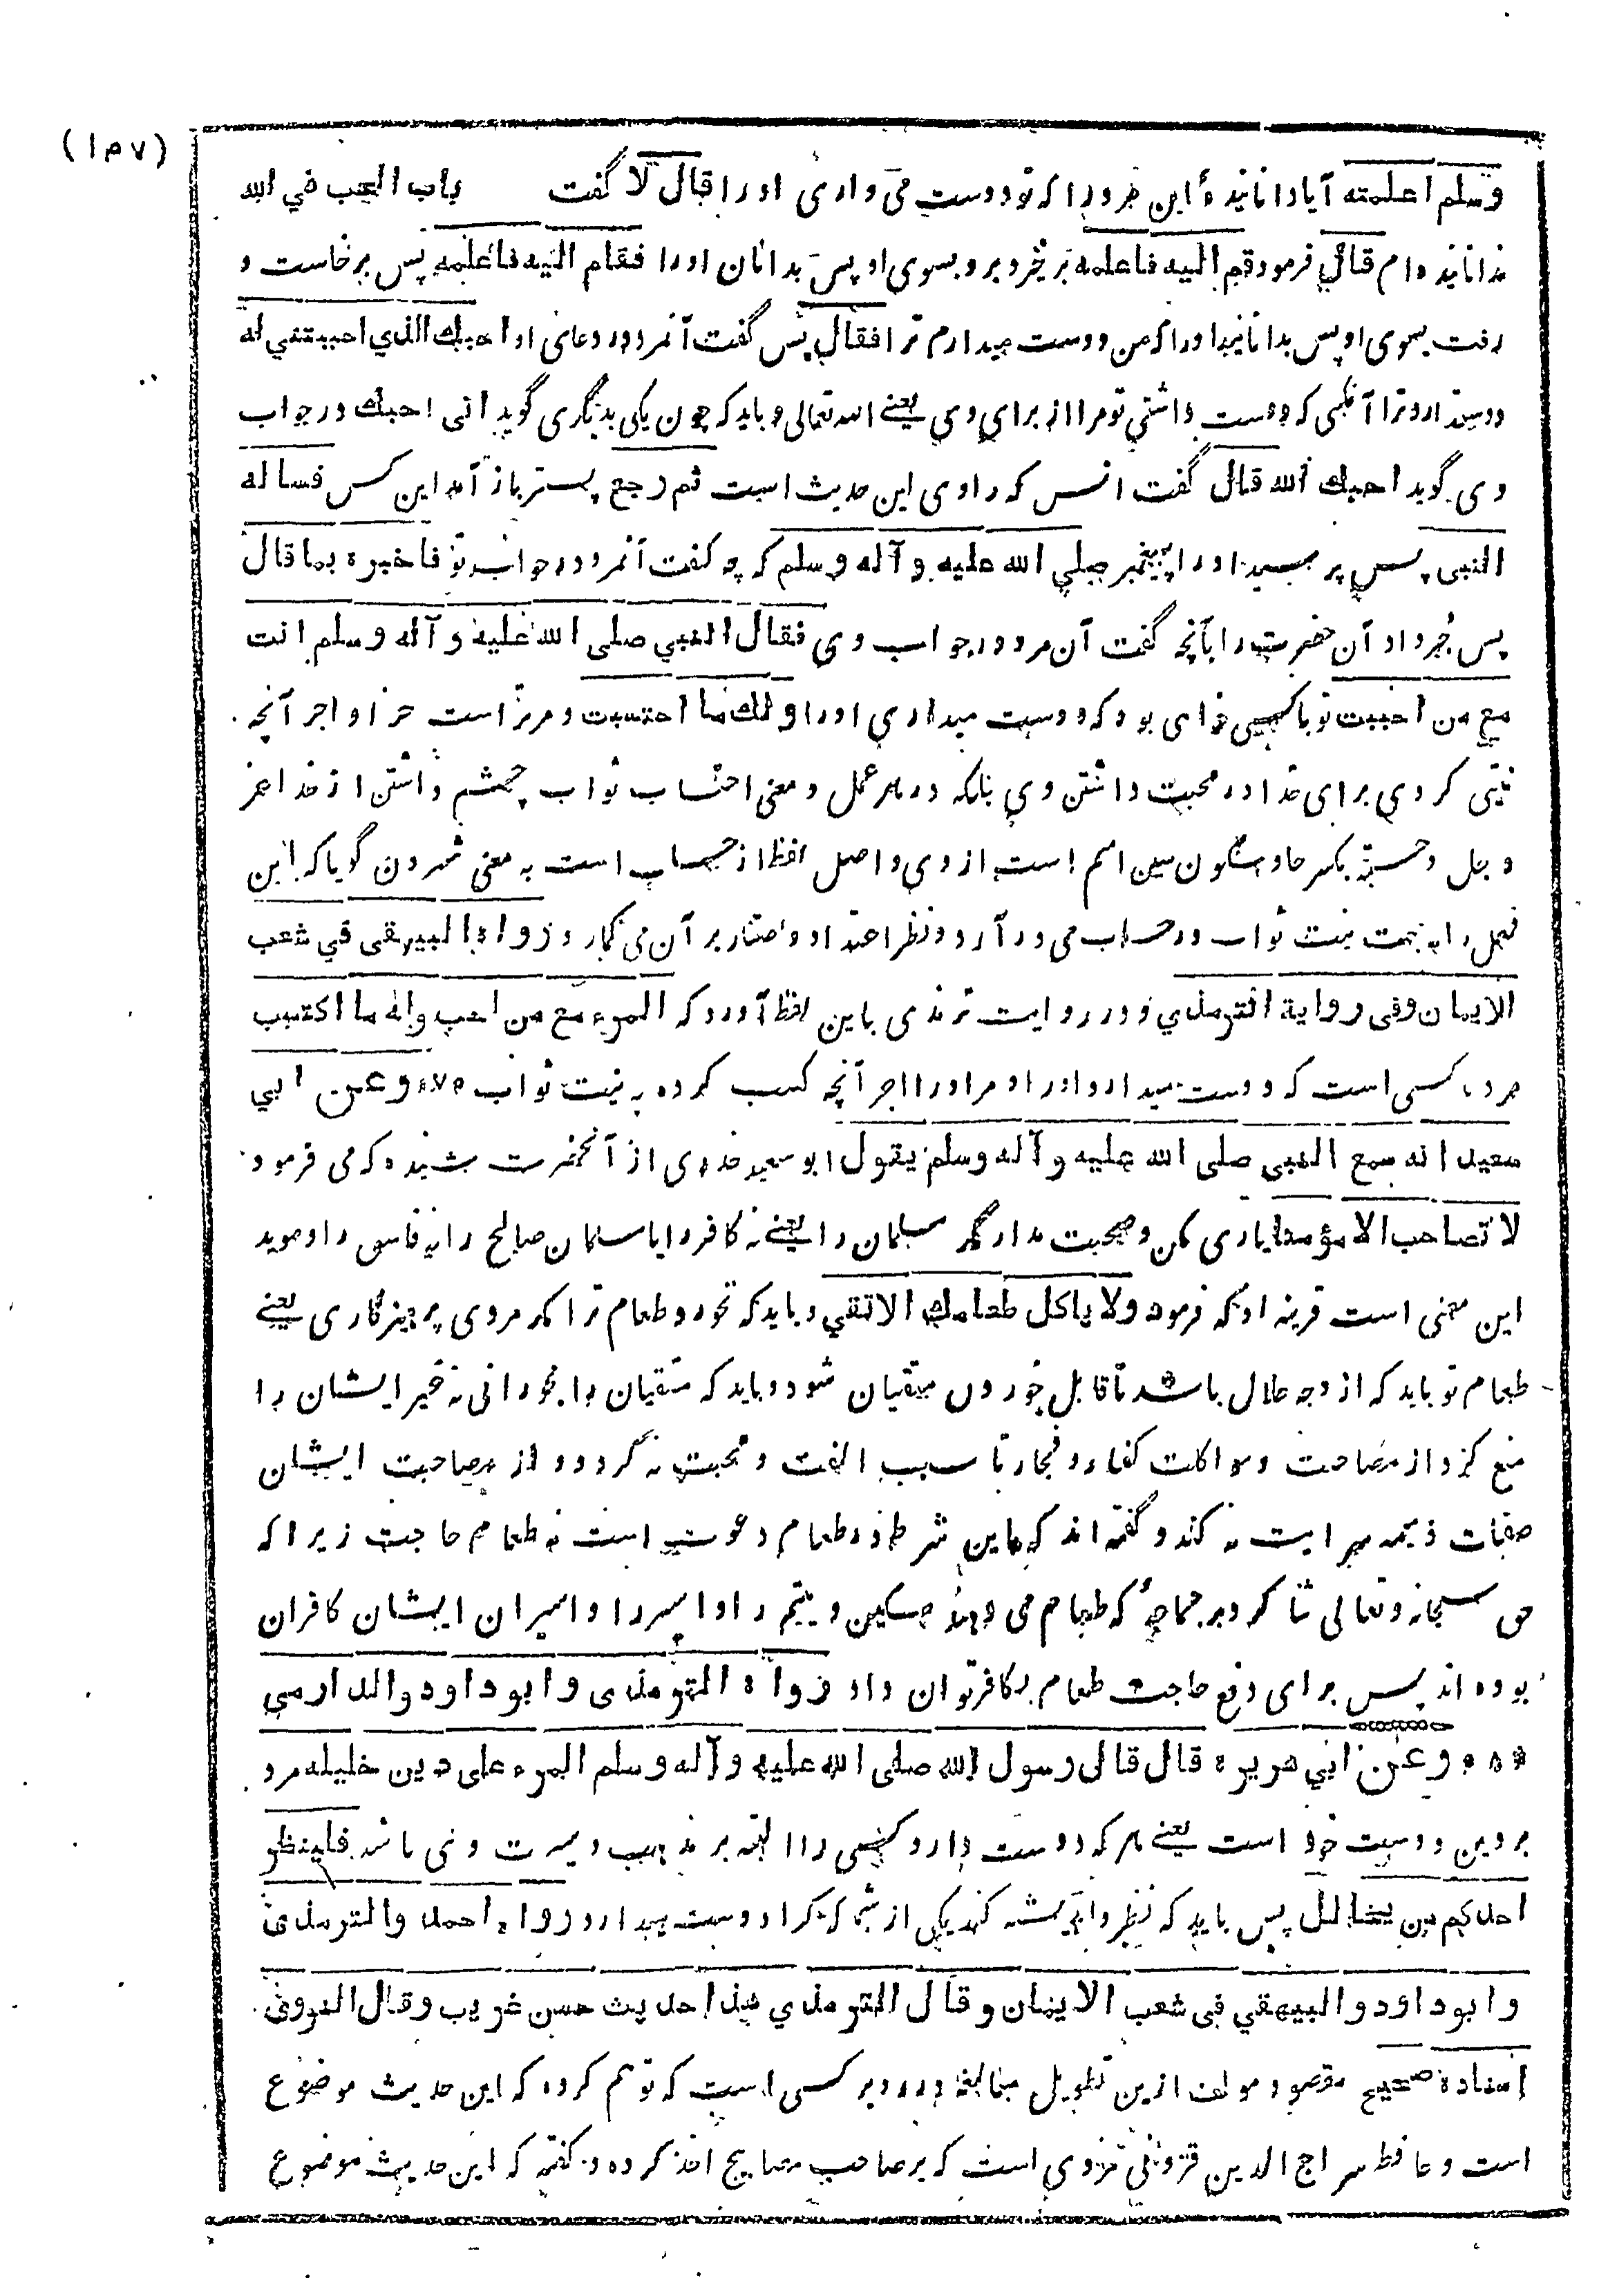 (١٣٧)
وسلم اعلمته آیا دانانیدهٔ این مرد را که تو دوست می داری او را قال لا گفت باب الحب في الله
ندانانیده ام قال فرمود قم اليه فاعلمه بر خیز و برو بسوی او پس بدانان او را فقام اليه فاعلمه پس برخاست و
رفت بسوی او پس بدانانید او را که من دوست میدارم ترا فقال پس گفت آنمرد در دعای او احبك الذي احببتني له
دوست دارد ترا آنکسی که دوست داشتي تو مرا از برای وي یعنے الله تعالی و باید که چون یکی بدیگری گوید انی احبك در جواب
وی گوید احبك الله قال گفت انس که راوی این حدیث است ثم رجع پستر باز آمد این کس فساله
النبی پس پرسید او را پیغمبر صلي الله عليه و آله وسلم که چه گفت آنمرد در جواب تو فاخبره بما قال
پس خبر داد آن حضرت را بآنچه گفت آن مرد در جواب وی فقال النبي صلى الله عليه و آله وسلم انت
مع من احببت تو با کسی خواهی بود که دوست میداري او را ولك ما احتسبت و مر تراست جزا و اجر آنچه
نیتی کردی برای خدا در محبت داشتن وي بلکه در هر عمل و معنی احتساب ثواب چشم داشتن از خدا عز
و جل و حسبة بکسر حا و سکون سین اسم است از وی و اصل لفظ از حساب است به معنی شمردن گویا که این
فعل را به جهت نیت ثواب در حساب می در آرد و نظر اعتداد و اعتبار بر آن می گمارد رواه البيهقى في شعب
الايمان وفى رواية الترمذي و در روایت ترمذی باین لفظ آورد که المرء مع من احب وله ما اكتسب
مرد با کسی است که دوست میدارد او را و مر او را اجر آنچه کسب کرده به نیت ثواب وعن ابي
سعيد انه سمع النبي صلى الله عليه و آله وسلم يقول ابو سعید خدری از آنحضرت شنیده که می فرمود
لا تصاحب الا مؤمنا یاری مکن و صحبت مدار مگر مسلمان را یعنے نه کافر را یا مسلمان صالح را نه فاسق را و موید
این معنی است قرینه او که فرمود ولا ياكل طعامك الا تقي و باید که نخورد طعام ترا مگر مردی پرهیزگاری یعنے
طعام تو باید که از وجه حلال باشد تا قابل خوردن متقیان شود و باید که متقیان را بخورانی نه غیر ایشان را
منع کرد از مصاحبت و مواکلت کفار و فجار تا سبب الفت و محبت نه گردد و از مصاحبت ایشان
صفات ذمیمه سرایت نه کند و گفته اند که این شرط در طعام دعوت است نه طعام حاجت زیرا که
حق سبحانه و تعالی ثنا کرد بر جماعهٔ که طعام می دهند مسکین و یتیم را و اسیر را و اسیران ایشان کافران
بوده اند پس برای دفع حاجت طعام بکافر توان داد رواه الترمذى وابو داود والدارمي
وعن ابي هريرة قال قال رسول الله صلى الله عليه و آله وسلم المرء على دين خليله مرد
بر دین دوست خود است یعنے هر که دوست دارد کسی را البته بر مذهب و سیرت وی باشد فلينظر
احدكم من يخالل پس باید که نظر و اندیشه کند یکی از شما که کرا دوست میدارد رواه احمد والترمذي
وابو داود والبيهقي فى شعب الايمان وقال الترمذي هذا حديث حسن غريب وقال النووى
اسناده صحيح مقصود مولف ازین تطویل مبالغه در رد بر کسی است که توهم کرده که این حدیث موضوع
است و حافظ سراج الدین قزوینی است که بر صاحب مصابیح اخذ کرده و گفته که این حدیث موضوع